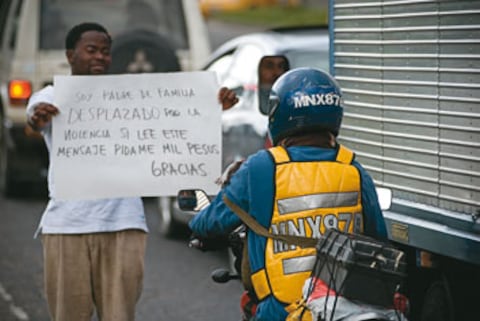 SOY PADRE DE FAMILIA
DESPLAZADO POR LA
VIOLENCIA SI LEE ESTE
MENSAJE PIDAME MIL PESUS
GRACIAS
MNX87
MNX87